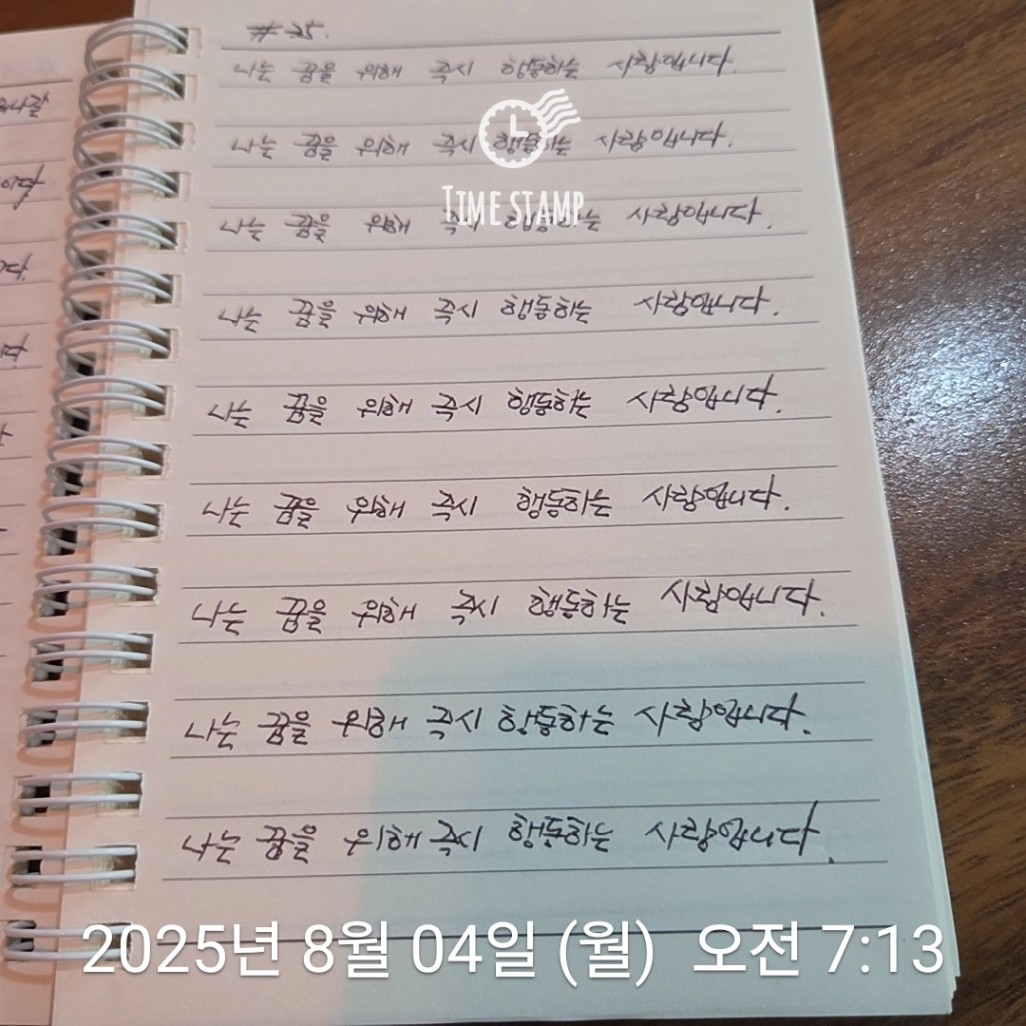 #25.
나는 꿈을 위해 즉시 행동하는 사람입니다.
나는 꿈을 위해 즉시 행동하는 사람입니다.
TIME STAMP
나는 꿈을 위해 즉시 행동하는 사람입니다.
나는 꿈을 위해 즉시 행동하는 사람입니다.
나는 꿈을 위해 즉시 행동하는 사람입니다.
나는 꿈을 위해 즉시 행동하는 사람입니다.
나는 꿈을 위해 즉시 행동하는 사람입니다.
나는 꿈을 위해 즉시 행동하는 사람입니다.
나는 꿈을 위해 즉시 행동하는 사람입니다.
2025년 8월 04일 (월) 오전 7:13